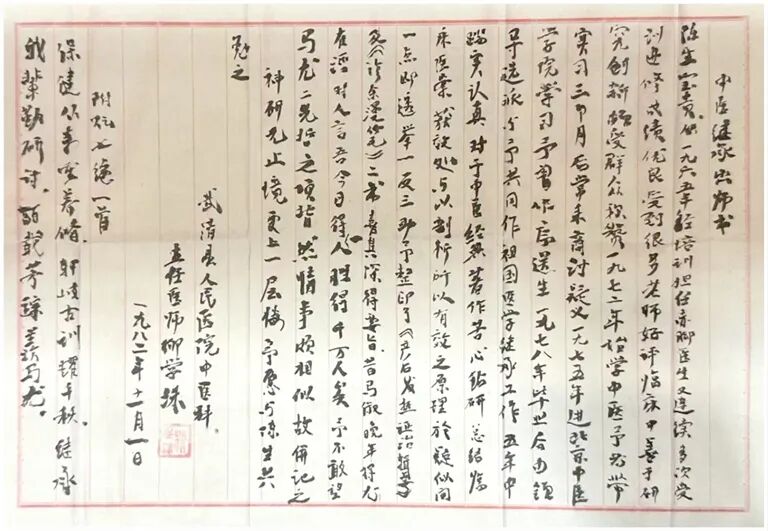 中医继承出师书
陈生宝贵，一九六五年经培训担任赤脚医生又连续多次受
训进修成绩优良受到很多老师好评临床中善于研
究创新颇受群众称赞一九七二年始学中医予为带
实习三个月后常来商讨疑义一九七五年进北京中医
学院学习予曾作序送生一九七八年毕业后由领
导选派与予共同作祖国医学继承工作五年中
踏实认真对于中医经典著作苦心钻研总结临
床医案获效处与以剖析所以有效之原理於疑似间
一点即透举一反三助予整印了《产后发热证治辑要
及《诊余漫笔》二书喜其深得要旨昔马俶晚年得尤
在泾对人言吾今日得一人胜得千万人矣予不敢望
马尤二先哲之项背然情事颇相似故併记之
神研无止境更上一层楼予愿与陈生共
勉之
武清县人民医院中医科。
主任医师柳学洙
一九八二年十一月一日
附七绝一首
保健事重养脩，轩岐古训耀千秋，继承
我辈勤研讨，芳踪美马尤。